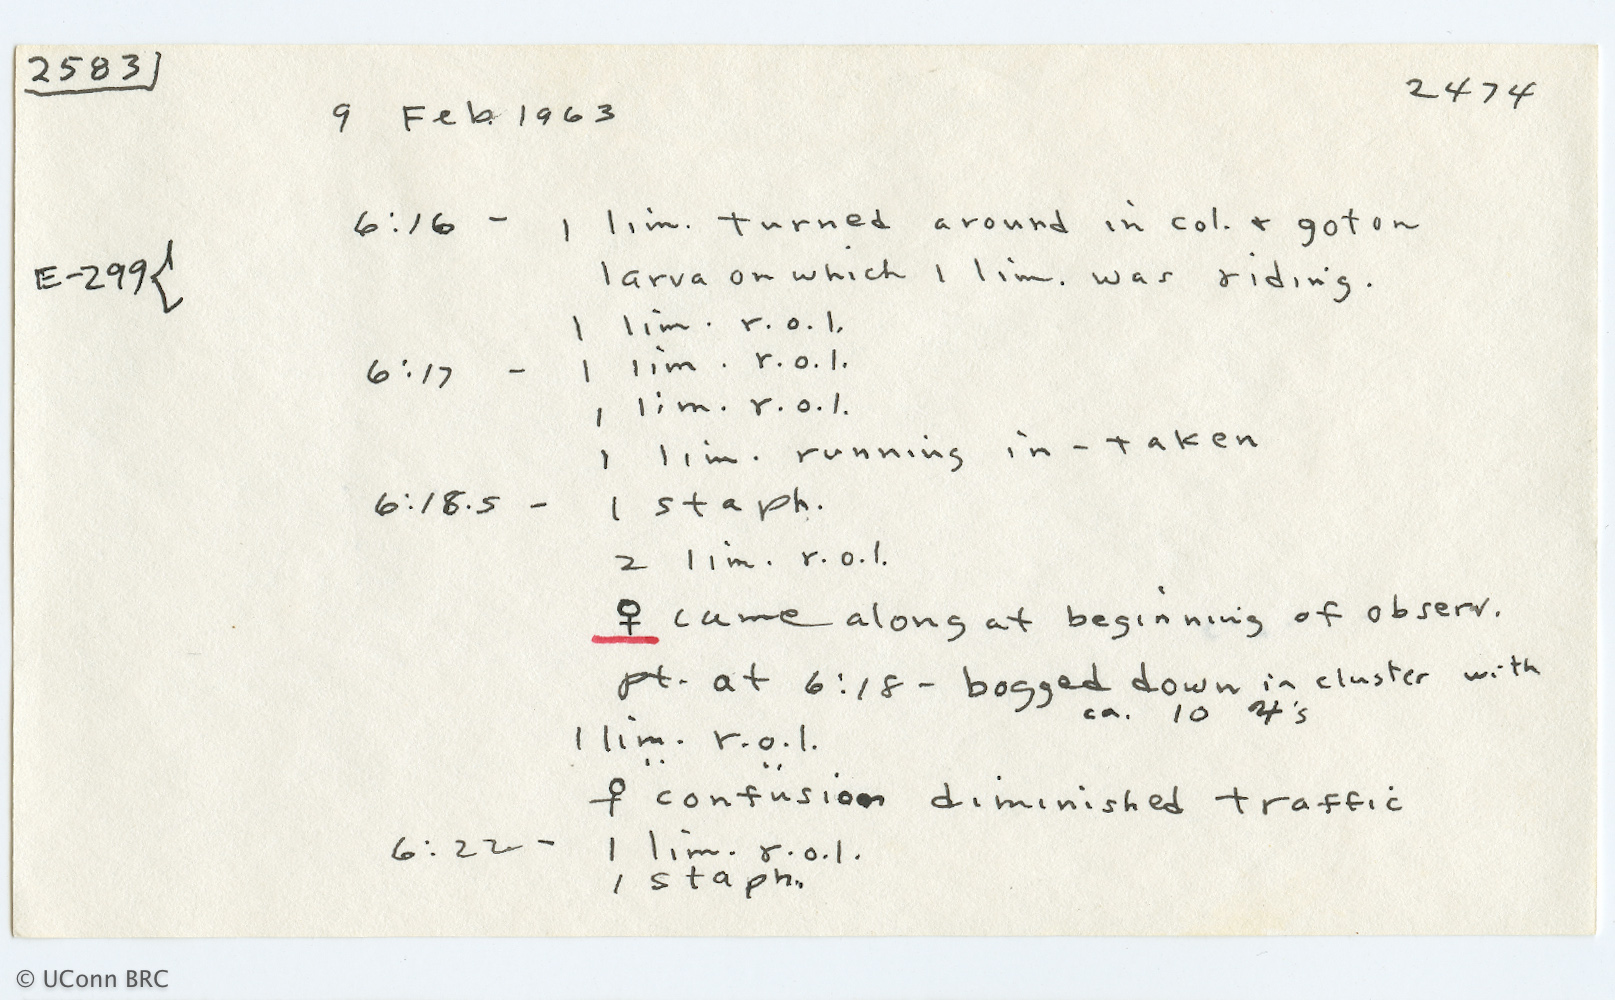 2583
2474
9 Feb. 1963
6:16 - 1 lim. turned around in col. + got on
E-299{ larva on which 1 lim. was riding.
1 lim. r.o.l.
6:17 - 1 lim. r.o.l.
1 lim. r.o.l.
1 lim. running in - taken
6:18.5 - 1 staph.
2 lim. r.o.l.
♀ came along at beginning of observ.
pt. at 6:18 - bogged down in cluster with
ca. 10 's
1 lim. r.o.l.
♀ confusion diminished traffic
6:22 - 1 lim. r.o.l.
1 staph.
© UConn BRC